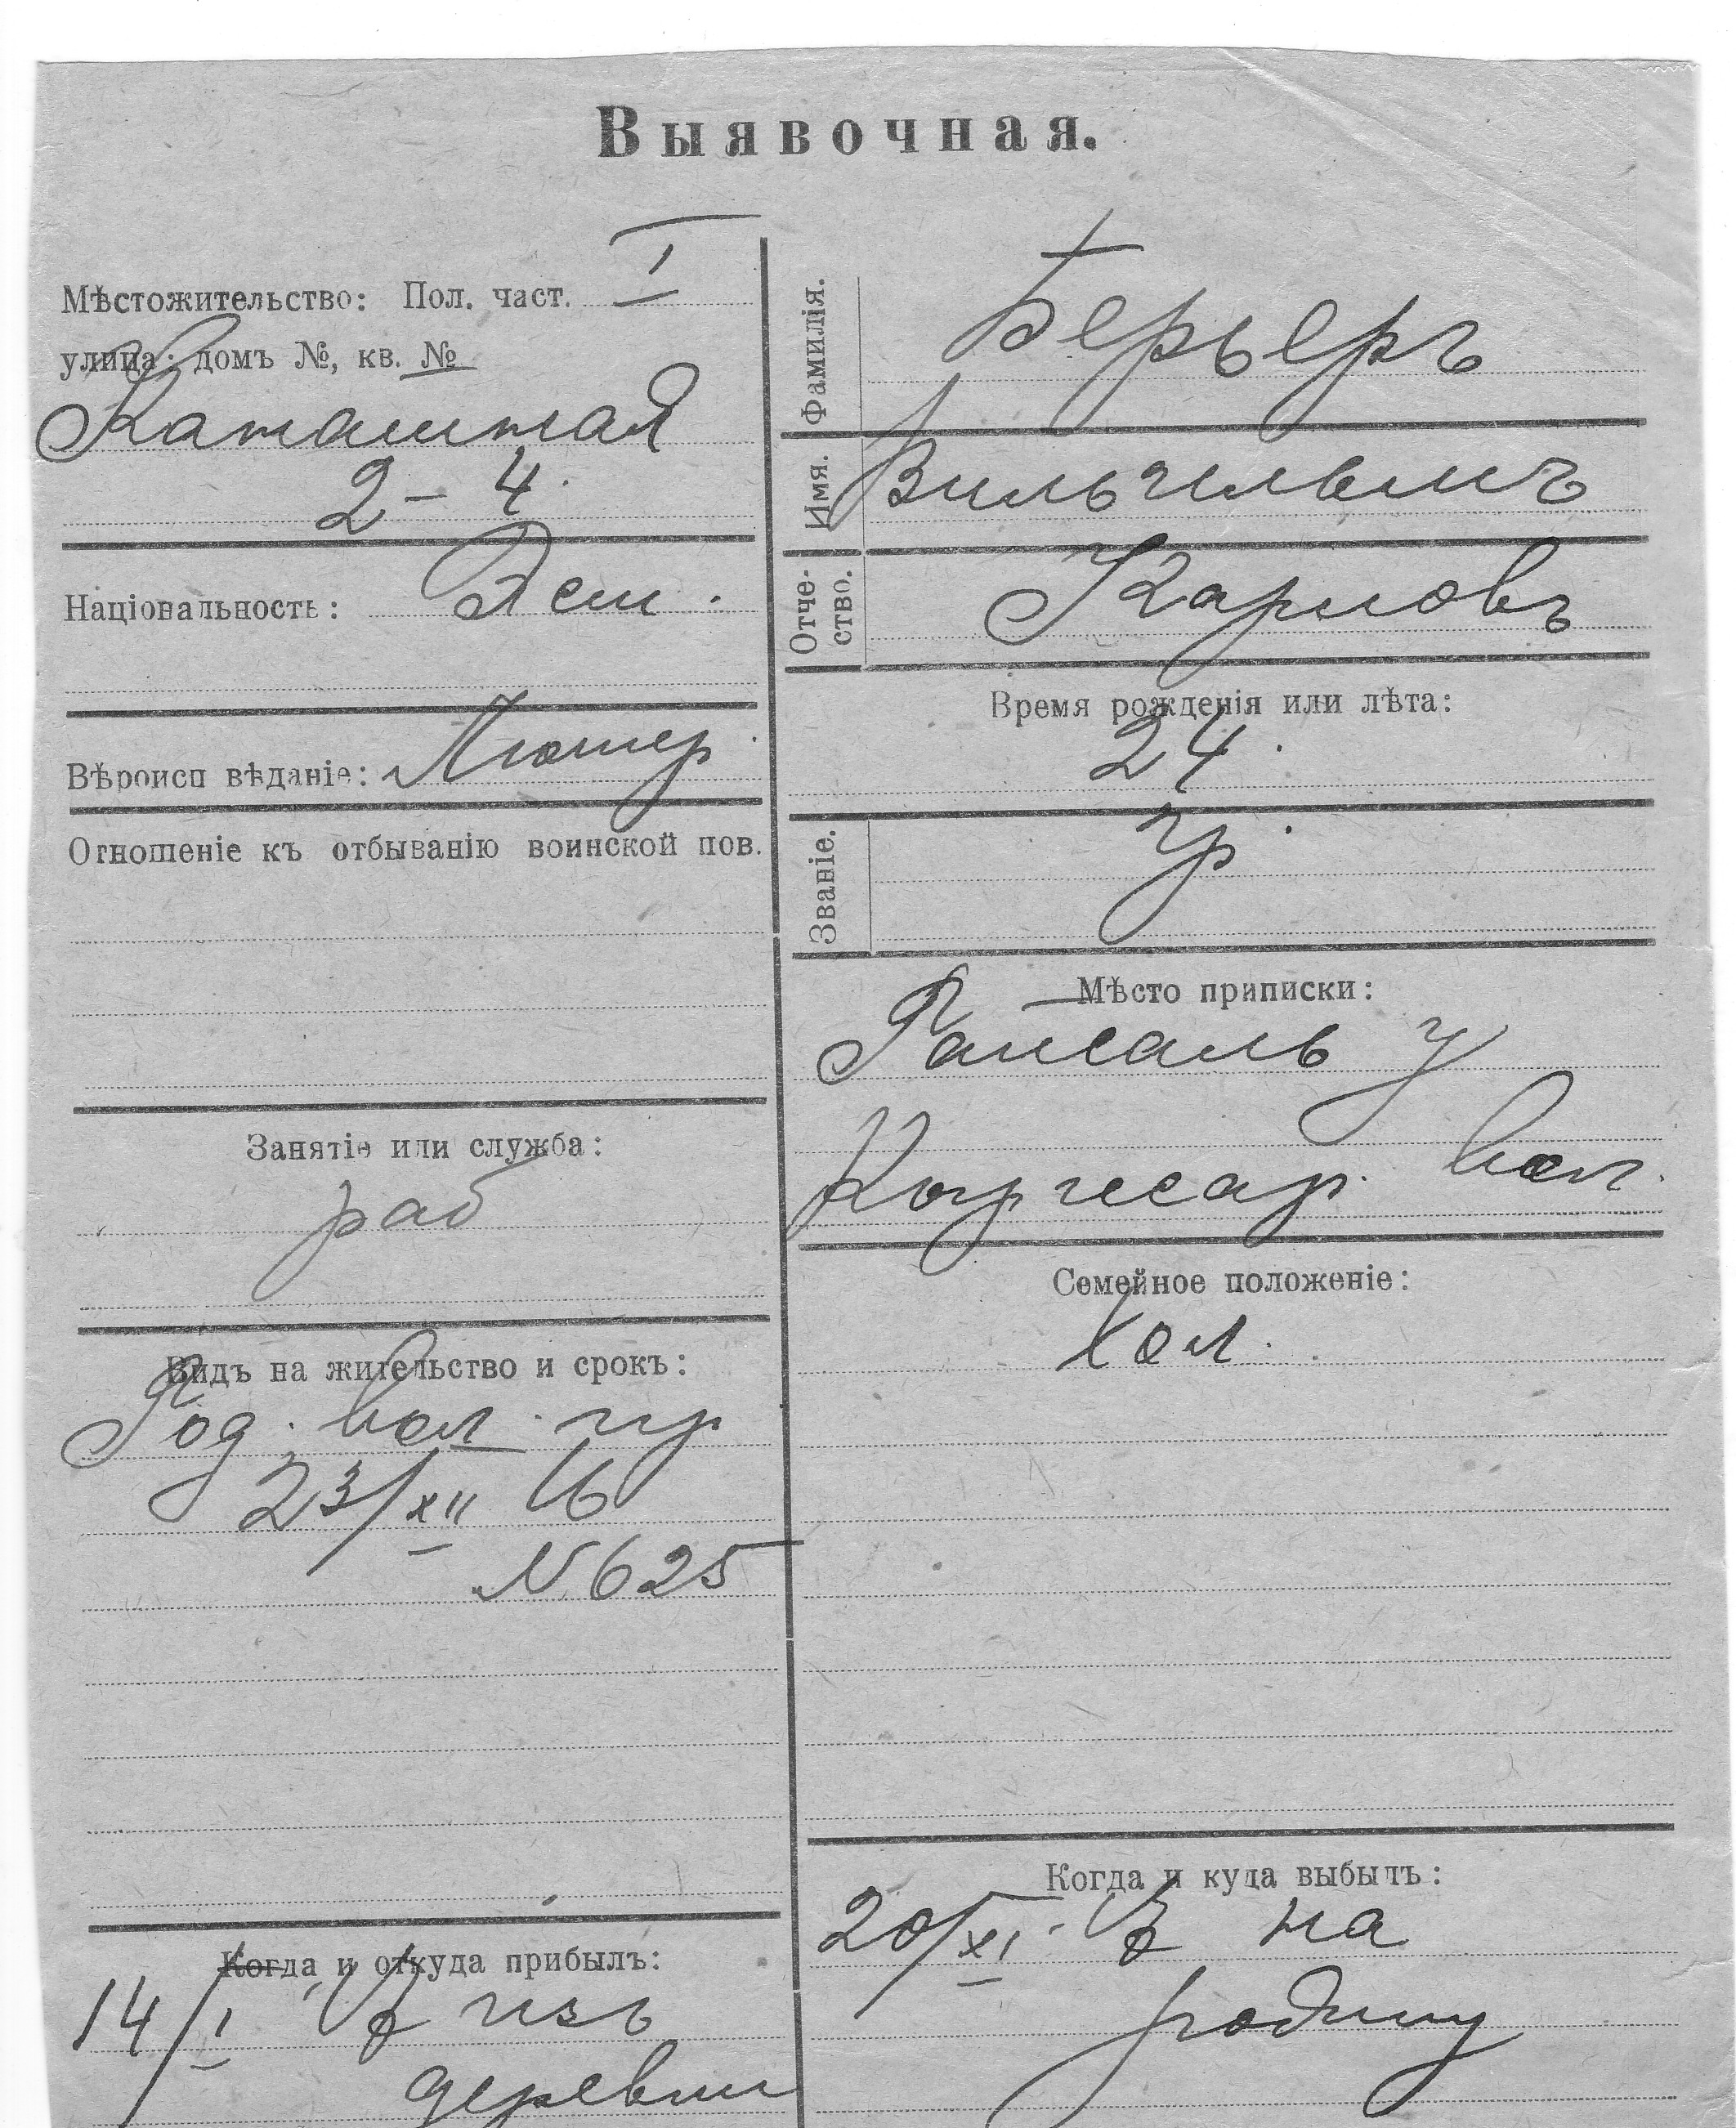 Выявочная.
Мѣстожительство: Пол. част. I
улица: домъ №, кв. №
2 - 4.
Національность: Эст.
Вѣроисп вѣданіе: Лютер.
Отношеніе къ отбыванію воинской пов.
Занятіе или служба:
раб
Видъ на жительство и срокъ:
Год. вол. пр
23/XII 16
№ 625
Когда и откуда прибылъ:
14/I изъ
деревни
Фамилія. Берьеръ
Имя. Вильгельмъ
Отче-
ство. Карловъ
Время рожденія или лѣта:
24.
Званіе. кр.
Мѣсто приписки:
Гапсаль у
вол.
Семейное положеніе:
хол.
Когда и куда выбылъ:
20/XI на
родину